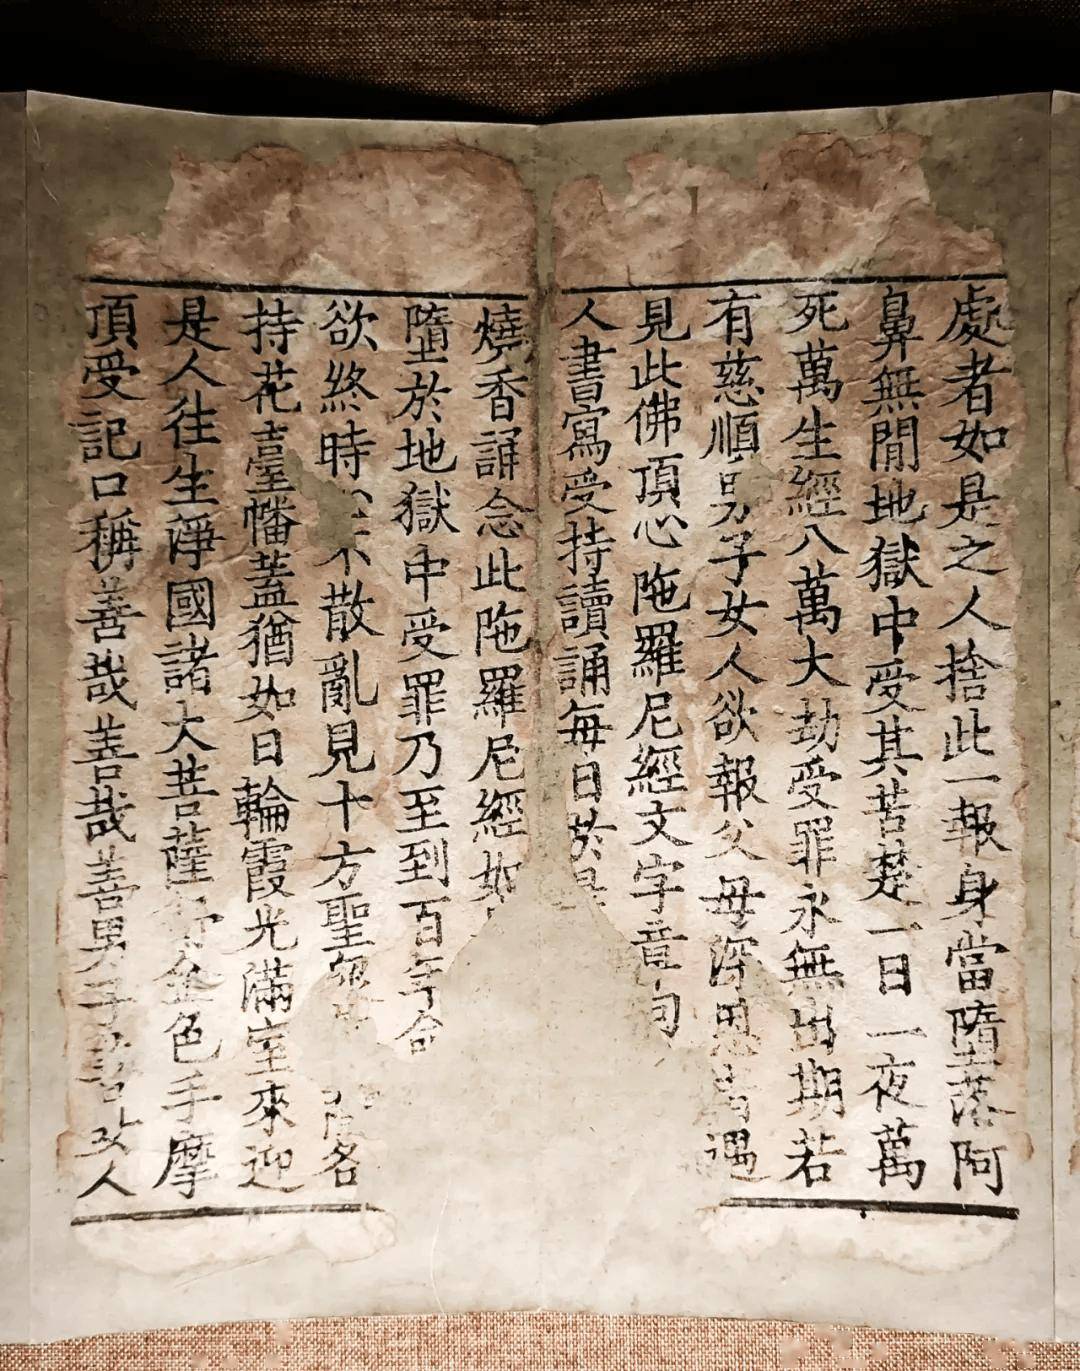 處者如是之人捨此一報身當墮落阿
鼻無間地獄中受其苦楚一日一夜萬
死萬生經八萬大劫受罪永無出期若
有慈順男子女人欲報父母深恩遇
見此佛頂心陁羅尼經文字章句
人書寫受持讀誦每日於
燒香誦念此陁羅尼經如
墮於地獄中受罪乃至到百年命
欲終時不散亂見十方聖眾各
持花臺幡蓋猶如日輪霞光滿室來迎
是人往生淨國諸大菩薩金色手摩
頂受記口稱善哉善哉善男子善女人